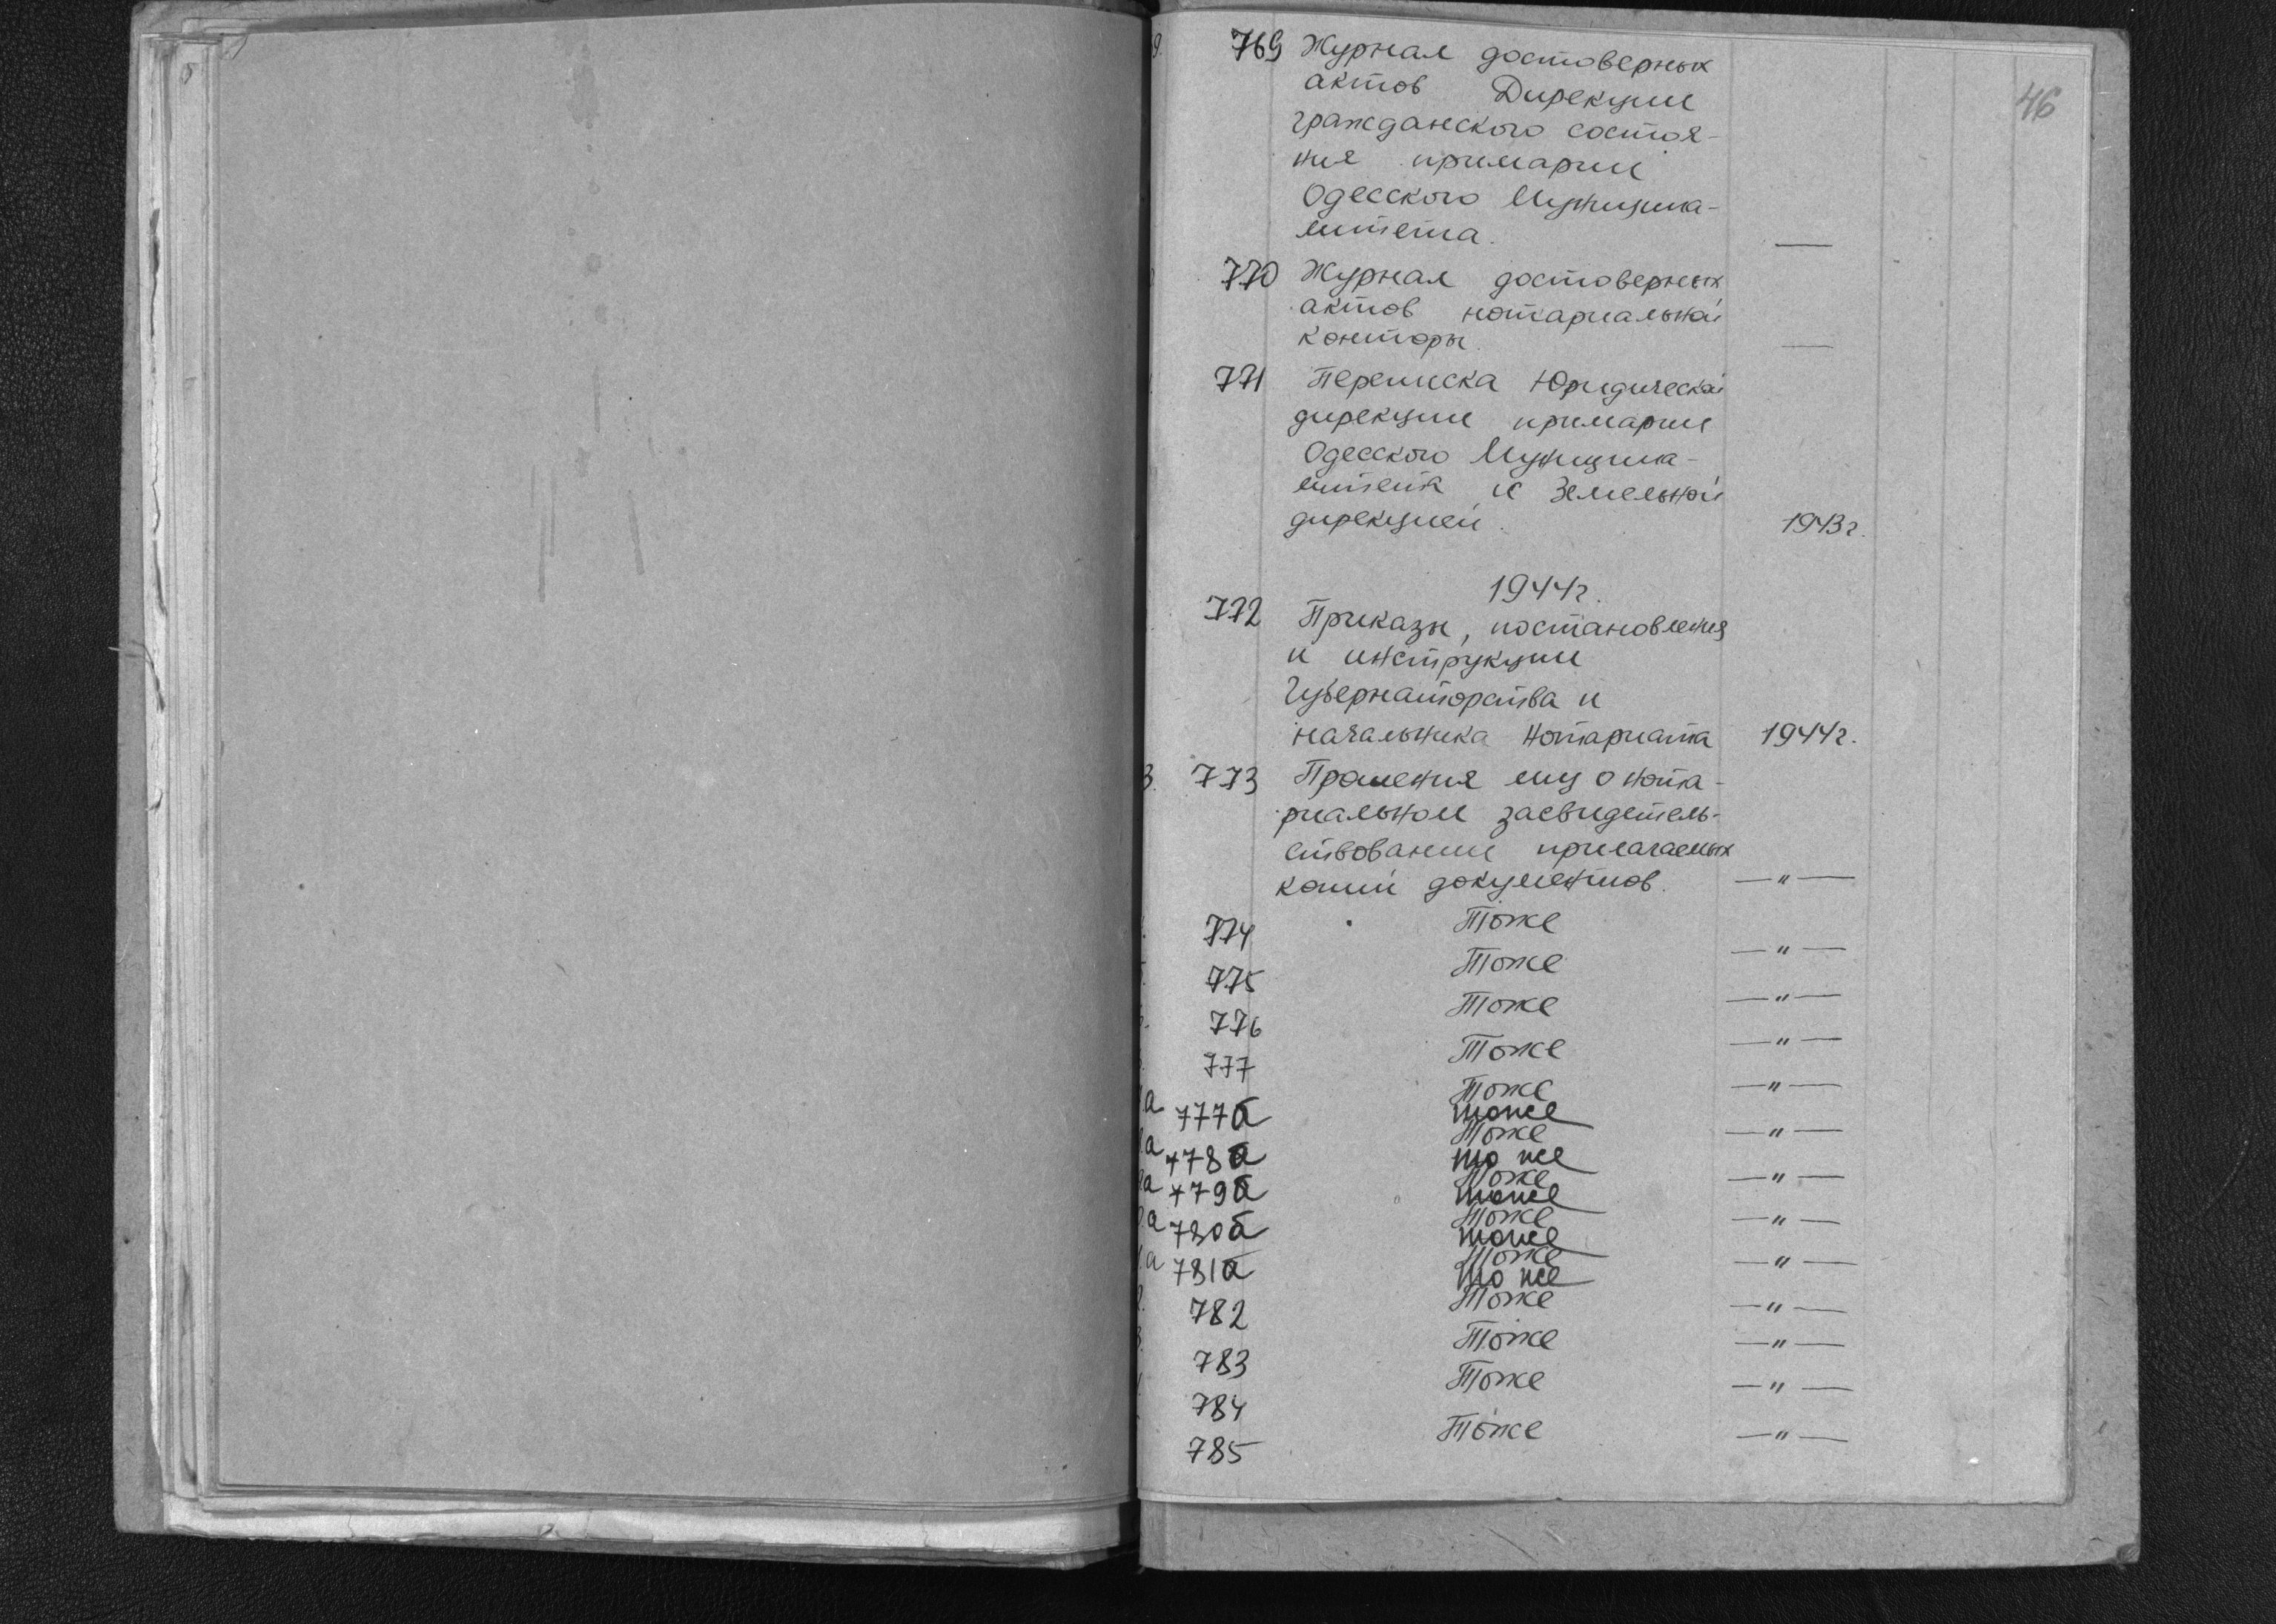 46
769 Журнал достоверных
актов Дирекции
гражданского состоя-
ния примарии
Одесского Муниципа-
литета. —
770 Журнал достоверных
актов нотариальной
конторы. —
771 Переписка Юридической
дирекции примарии
Одесского Муниципа-
литета с Земельной
дирекцией. 1943г.
1944г.
772 Приказы, постановления
и инструкции
Губернаторства и
начальника нотариата 1944г.
773 Прошения лиц о нота-
риальном засвидетель-
ствовании прилагаемых
копий документов. —"—
774 Тоже —"—
775 Тоже —"—
776 Тоже —"—
777 Тоже —"—
а 777а Тоже
тоже —"—
а 778а Тоже
то же —"—
а 779а Тоже
тоже —"—
а 780а Тоже
тоже —"—
а 781а Тоже
то же —"—
782 Тоже —"—
783 Тоже —"—
784 Тоже —"—
785 Тоже —"—